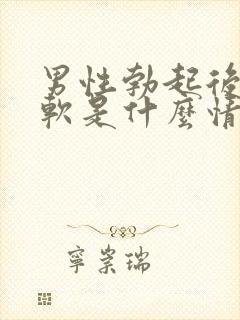 男性勃起後
軟是什麼情
寧崇瑞